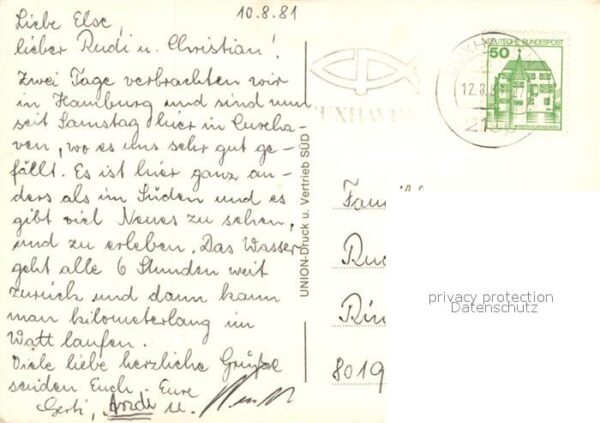 10.8.81
Liebe Else,
lieber Rudi u. Christian!
Zwei Tage verbrachten wir
in Hamburg und sind nun
seit Samstag hier in Cuxha-
ven, wo es uns sehr gut ge-
fällt. Es ist hier ganz an-
ders als im Süden und es
gibt viel Neues zu sehen,
und zu erleben. Das Wasser
geht alle 6 Stunden weit
zurück und dann kann
man kilometerlang im
Watt laufen.
Viele liebe herzliche Grüße
senden Euch. Eure
Gerti, u.
UNION-Druck u. Vertrieb SÜD
UXHAVEN
50 DEUTSCHE BUNDESPOST
12.8.
Fam
Rud
Rin
8019
privacy protection
Datenschutz